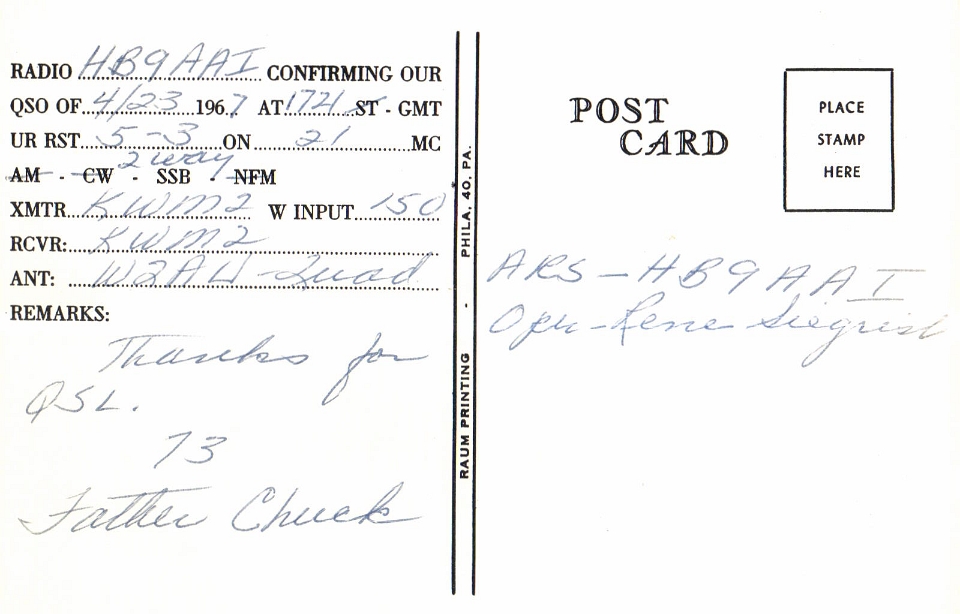 RADIO HB9AAI CONFIRMING OUR
QSO OF 4/23 1967 AT 1721 ST - GMT
UR RST 5-3 ON 21 MC
2 way
AM - CW - SSB - NFM
XMTR KWM2 W INPUT 150
RCVR: KWM2
ANT: W2AU-Quad
REMARKS:
Thanks for
QSL.
73
Father Chuck
RAUM PRINTING - PHILA, 40, PA.
POST
CARD
PLACE
STAMP
HERE
ARS-HB9AAI
Opr-Rene Siegrist